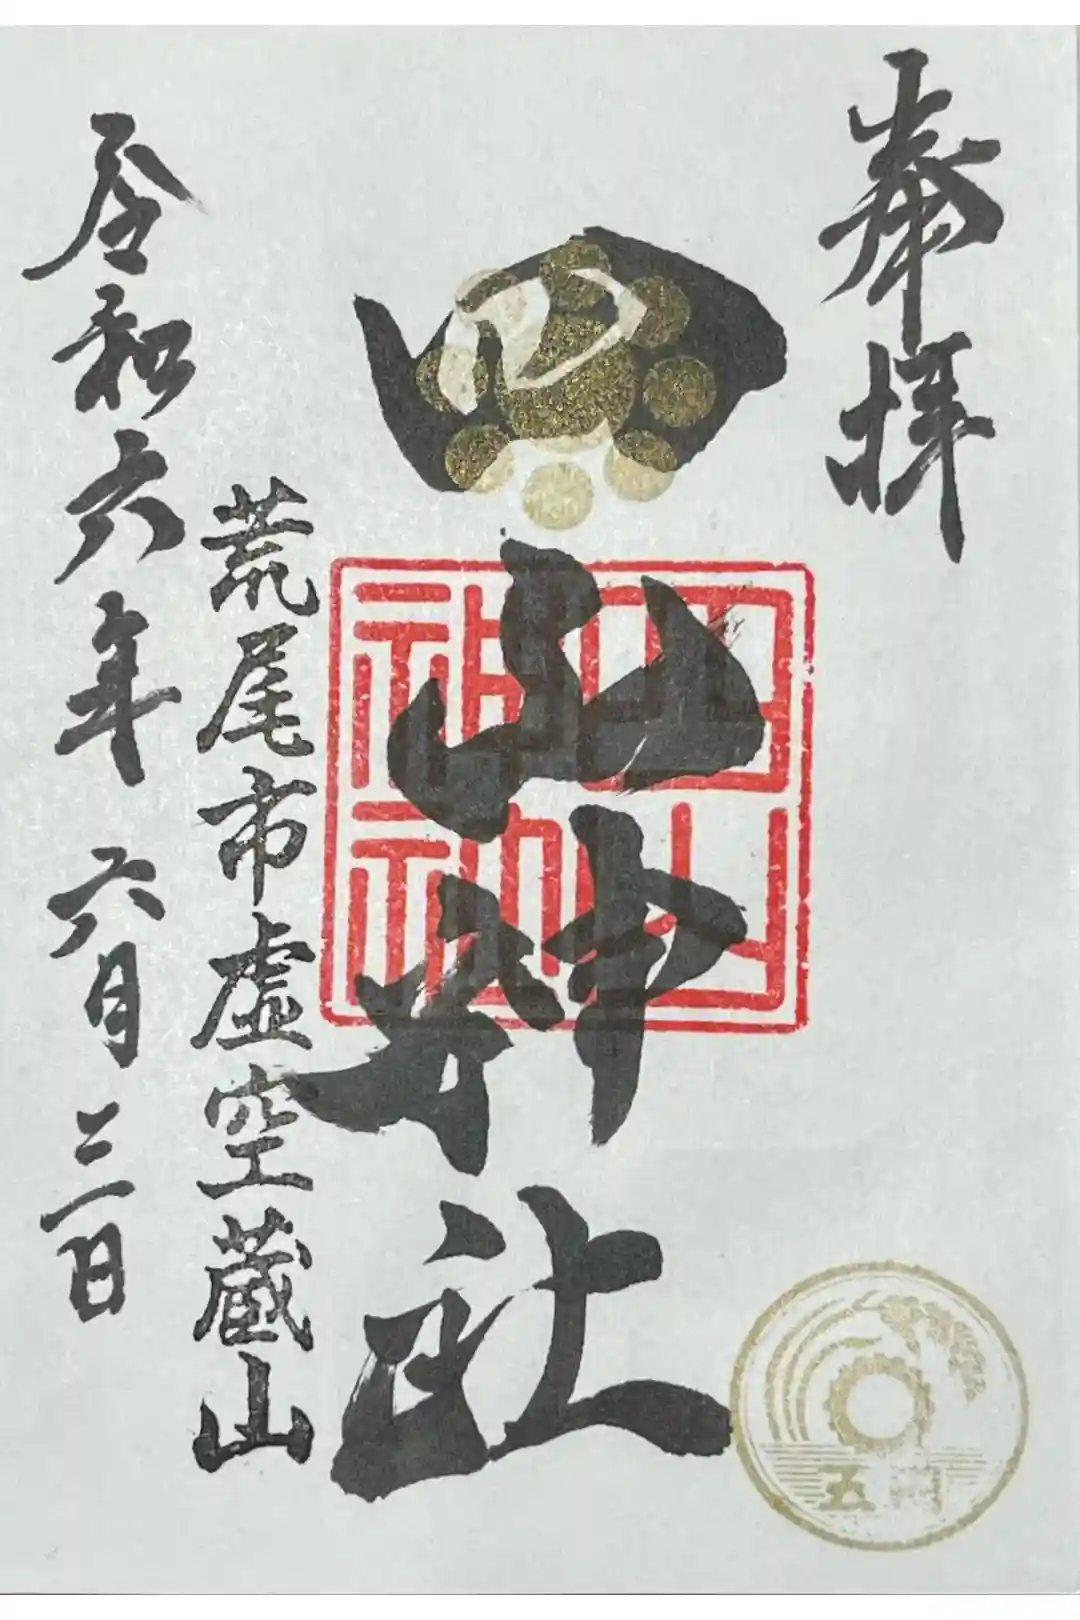 奉拝
四山神社
四山神社
荒尾市虚空蔵山
令和六年 六月二日
五円